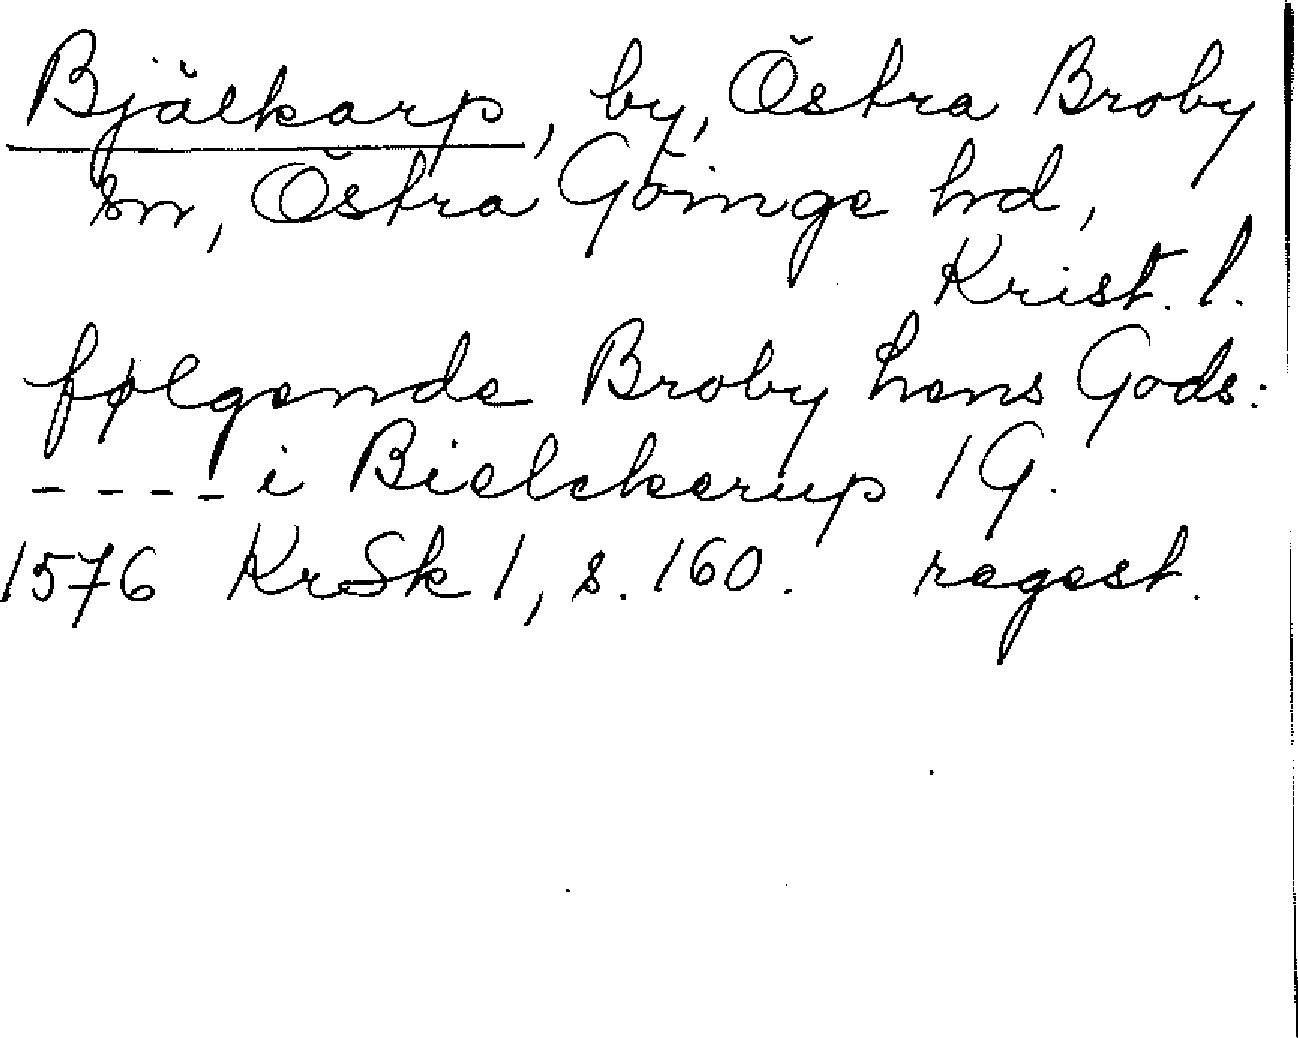 Bjälkarp, by, Östra Broby
sn, Östra Göinge hd,
Krist. l.
følgende Broby Lens Gods:
---- i Bielckerup 1 G.
1576 KrSk 1, s. 160. regest.